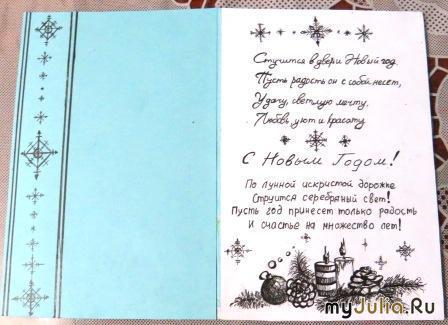 Стучится в двери Новый год.
Пусть радость он с собой несет,
Удачу, светлую мечту,
Любовь, уют и красоту
С Новым Годом!
По лунной искристой дорожке
Струится серебряный свет!
Пусть год принесет только радость
И счастье на множество лет!
myJulia.Ru